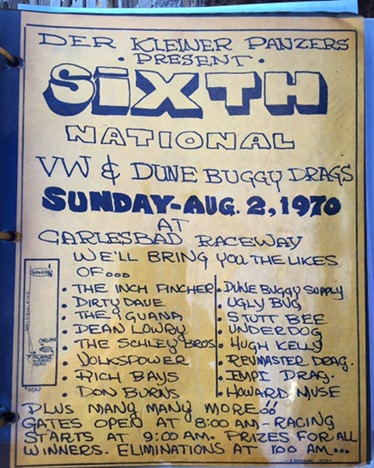 DER KLEINER PANZERS
· PRESENT ·
SIXTH
NATIONAL
VW & DUNE BUGGY DRAGS
SUNDAY-AUG. 2, 1970
AT
CARLESBAD RACEWAY
WE'LL BRING YOU THE LIKES
OF...
· THE INCH PINCHER
· DIRTY DAVE
· THE IGUANA
· DEAN LOWRY
· THE SCHLEY BROS.
· VOLKSPOWER
· RICH BAYS
· DON BURNS
· DUNE BUGGY SUPPLY
· UGLY BUG
· STUTT BEE
· UNDERDOG
· HUGH KELLY
· REVMASTER DRAG.
· EMPI DRAG.
· HOWARD MUSE
MAP
PLUS MANY MANY MORE!!
GATES OPEN AT 8:00 AM - RACING
STARTS AT 9:00 AM. PRIZES FOR ALL
WINNERS. ELIMINATIONS AT 1:00 AM...